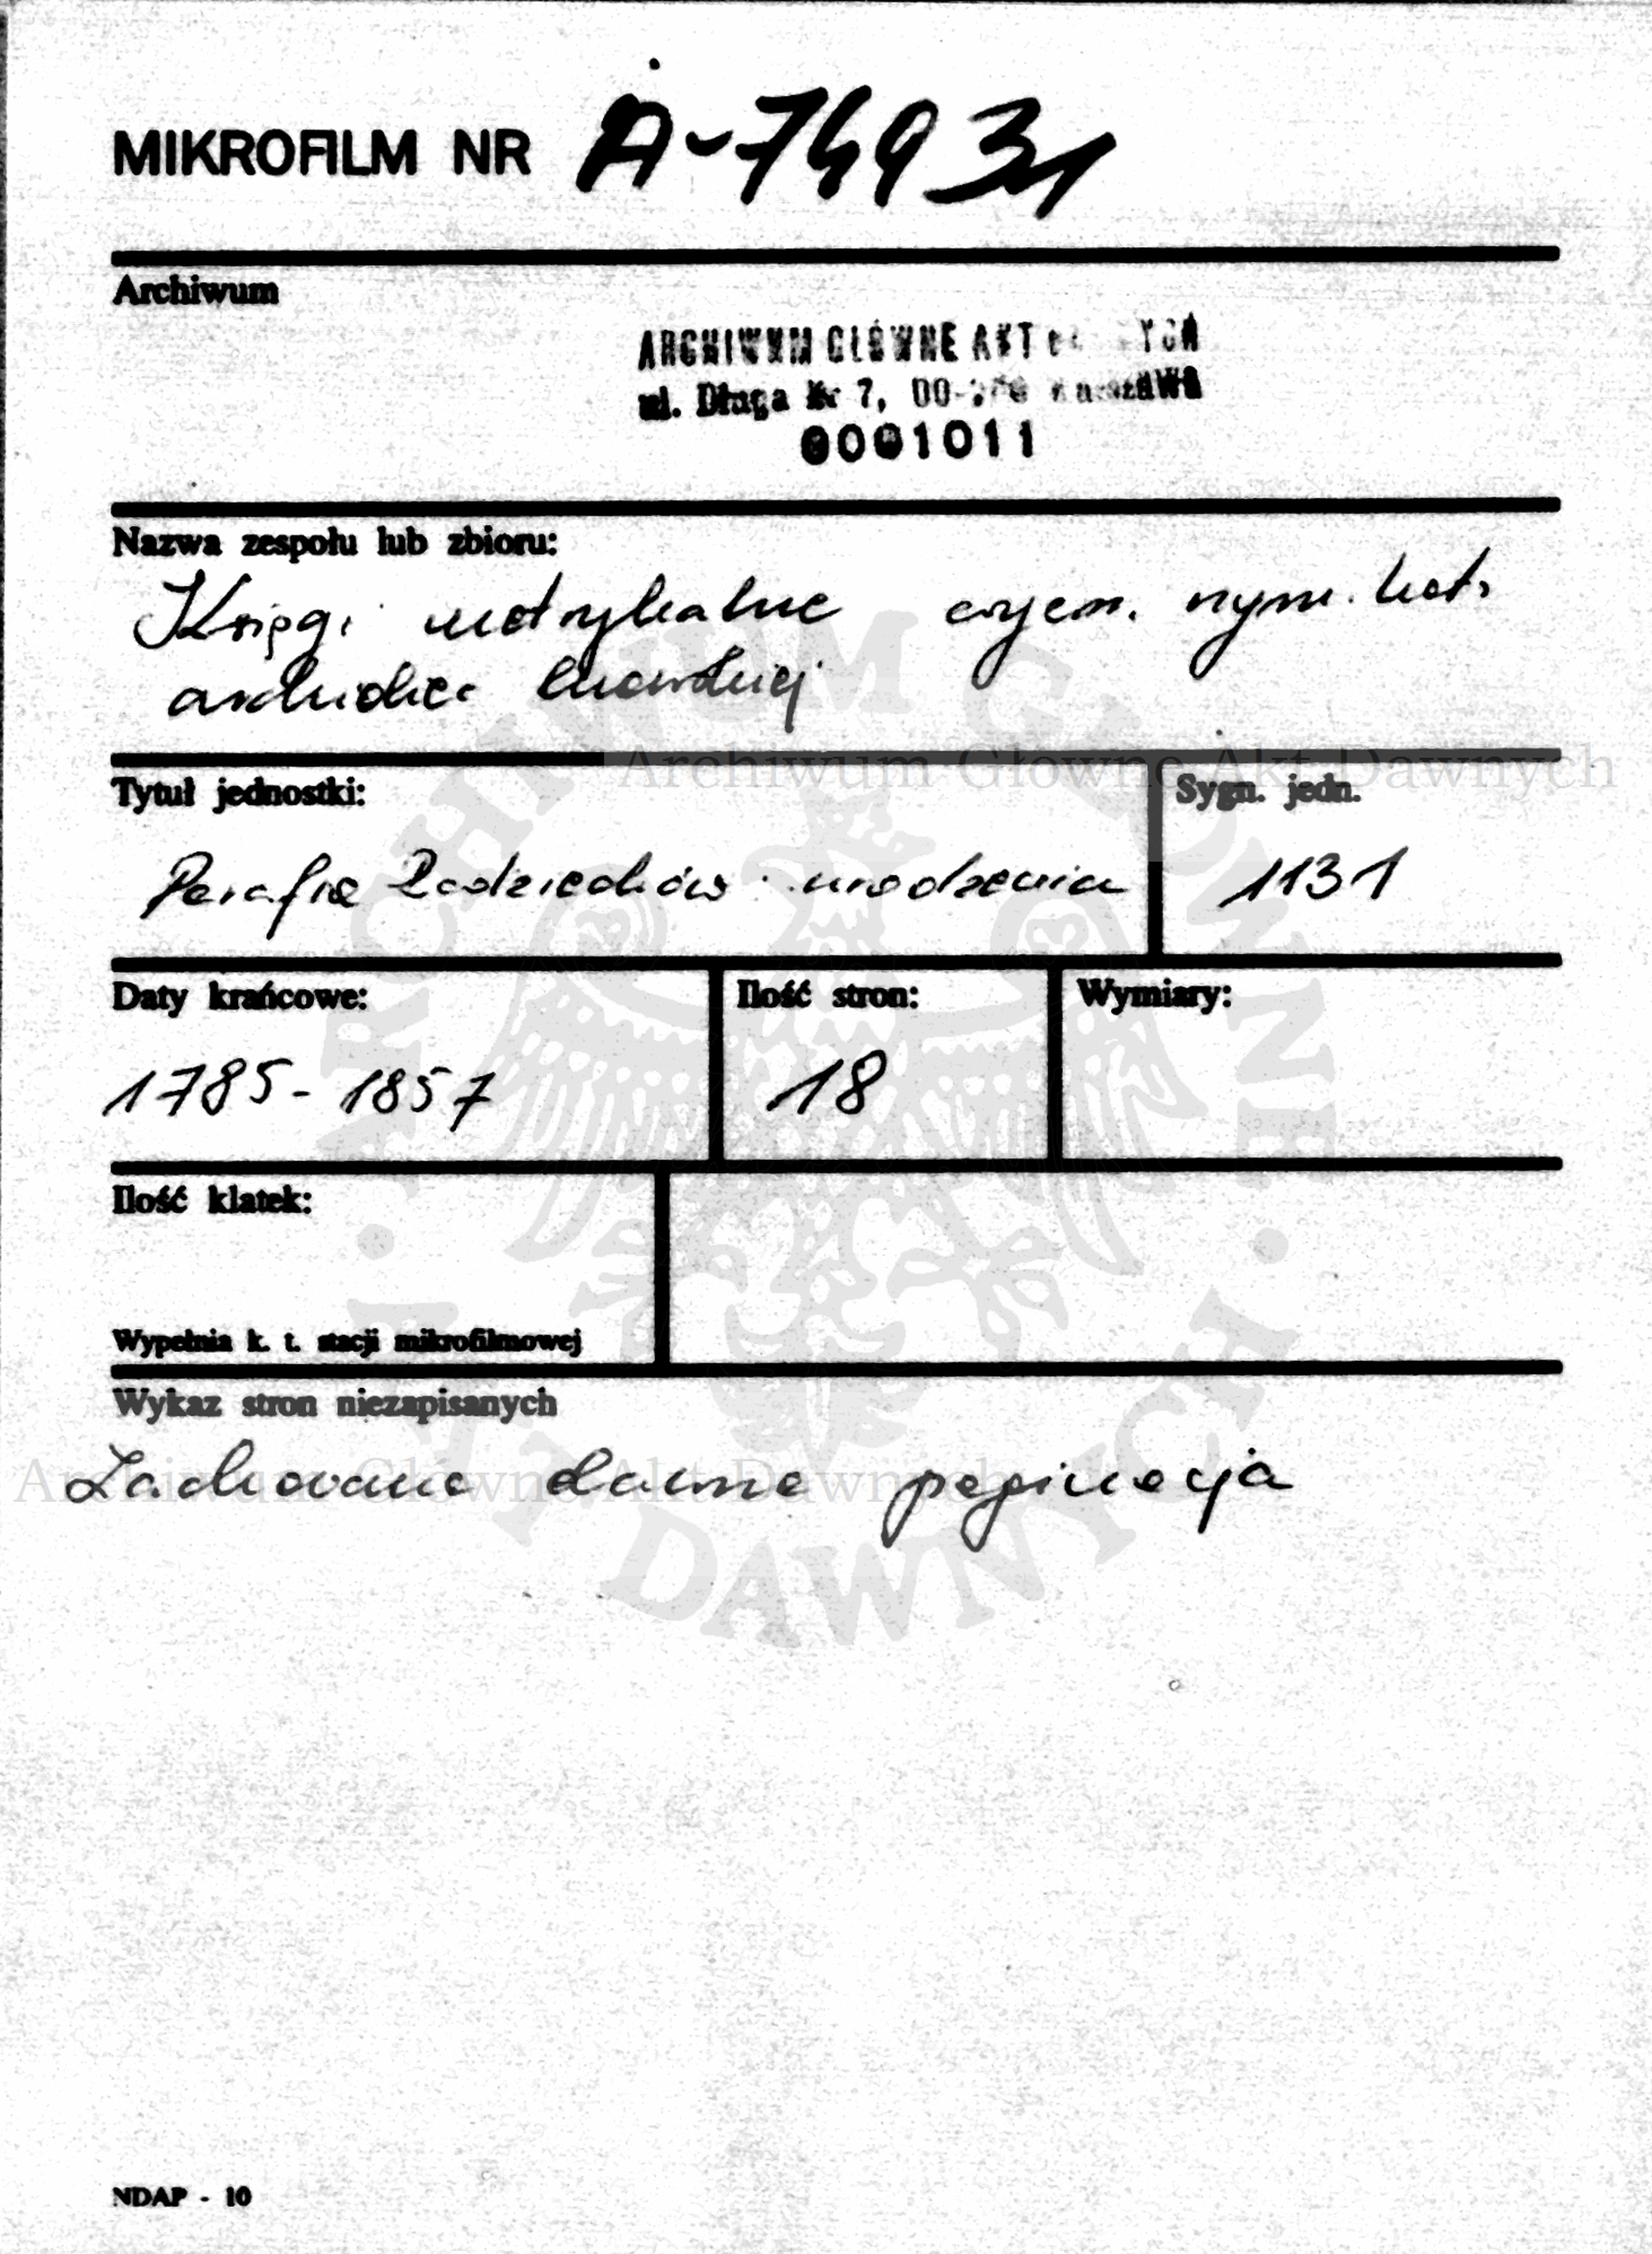 MIKROFILM NR A-74931
Archiwum
ARCHIWUM GŁÓWNE AKT
ul. Długa Nr 7, 00- Warszawa
0001011
Nazwa zespołu lub zbioru:
Księgi metrykalne wyzn. rzym. kat.
archidiec. lwowskiej
Tytuł jednostki:
Sygn. jedn.
Parafia Radziechów urodzenia
1131
Daty krańcowe:
Ilość stron:
Wymiary:
1785-1857
18
Ilość klatek:
Wypełnia k. t. stacji mikrofilmowej
Wykaz stron niezapisanych
Zachowano dawną paginację
NDAP - 10
Archiwum Główne Akt Dawnych
Archiwum Główne Akt Dawnych
ARCHIWUM GŁÓWNE
AKT DAWNYCH